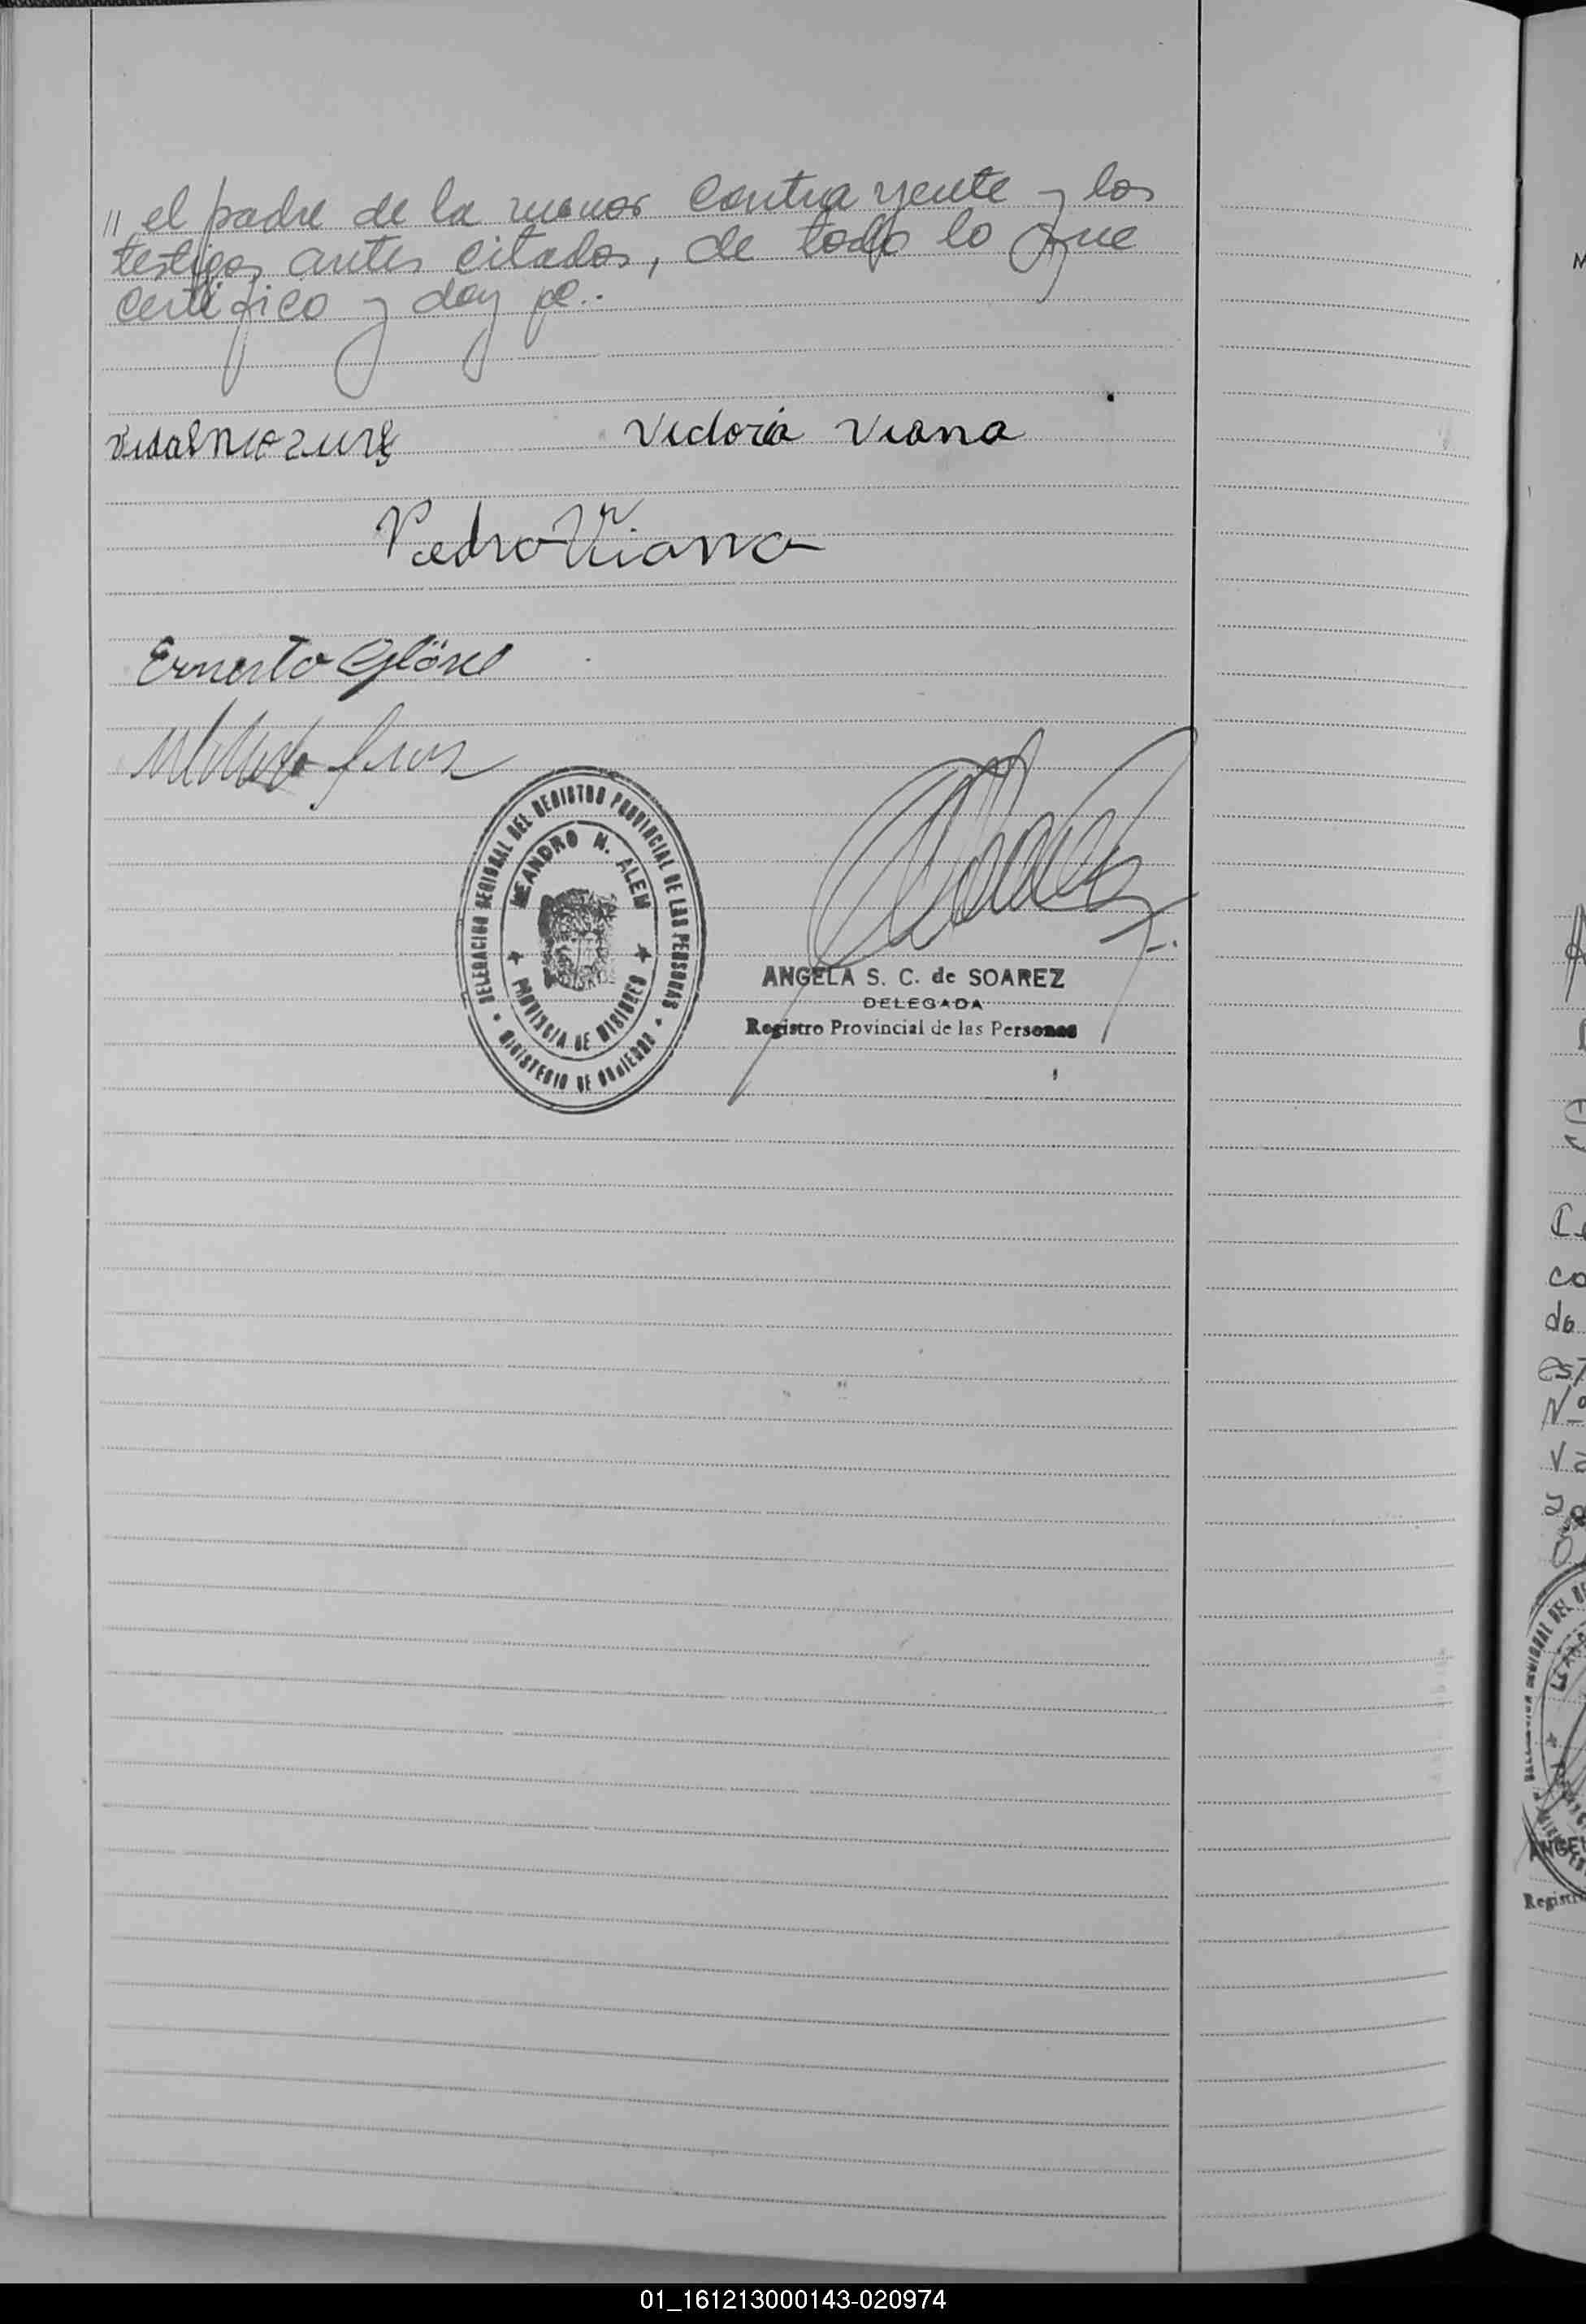 // el padre de la menor contrayente y los
testigos antes citados, de todo lo que
certifico y doy fe..
Victoria Viana
Pedro Viana
Ernesto Glösel
DELEGACION REGIONAL DEL REGISTRO PROVINCIAL DE LAS PERSONAS
LEANDRO N. ALEM
PROVINCIA DE MISIONES
MINISTERIO DE GOBIERNO
ANGELA S. C. de SOAREZ
DELEGADA
Registro Provincial de las Personas
01_161213000143-020974